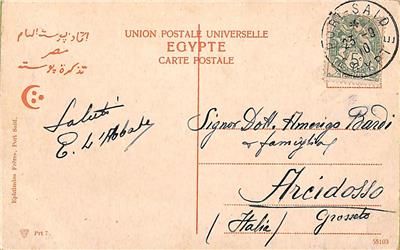 UNION POSTALE UNIVERSELLE
EGYPTE
CARTE POSTALE
اتحاد بوستة العام
مصر
تذكرة بوستة
PORT-SAID
EGYPT
Saluti
E. L'Abbate
Signor Dott. Amerigo Bardi
e famiglia
Arcidosso
(Italia) Grosseto
Ephtimios Frères, Port Said.
Prt 7.
55103